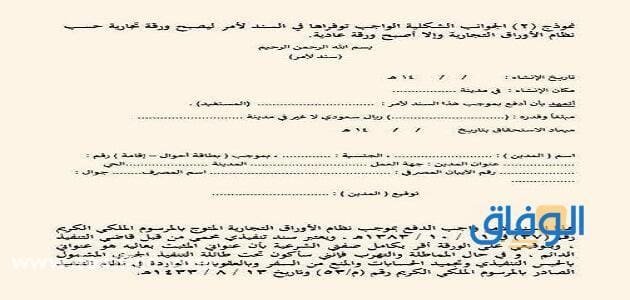 نموذج (٢) الجوانب الشكلية الواجب توفراها في السند لأمر ليصبح ورقة تجارية حسب
نظام الأوراق التجارية وإلا أصبح ورقة عادية.
بسم الله الرحمن الرحيم
(سند لأمر)
تاريخ الإنشاء: / / ١٤ هـ
مكان الإنشاء: في مدينة ................
أتعهد بأن أدفع بموجب هذا السند لأمر: .............................. (المستفيد) .
مبلغا وقدره: (..............................) ريال سعودي لا غير في مدينة ..............................
ميعاد الاستحقاق بتاريخ / / ١٤ هـ
اسم ( المدين ) : .............................. ، الجنسية : ................ ، بموجب ( بطاقة أحوال – إقامة ) رقم :
................ عنوان المدين : جهة العمل ................ المدينة ................ الحي
................ رقم الآيبان المصرفي : ................ اسم المصرف ................ جوال :
................
توقيع ( المدين ) : ..............................
الوفاق
واجب الدفع بموجب نظام الأوراق التجارية المتوج بالمرسوم الملكي الكريم
رقم (٣٧) / ١٠ / ١٣٨٣هـ . ويعتبر سند تنفيذي عمي من قبل قاضي التنفيذ
، وبتوقيعي على الورقة أقر بكامل صفتي الشرعية بأن عنواني المثبت بعاليه هو عنواني
الدائم . و في حال المماطلة والتهرب فإنني سأكون تحت طائلة التنفيذ الجبري المشمول
بالحبس التنفيذي وتجميد الحسابات والمنع من السفر وبالعقوبات الواردة في نظام التنفيذ
الصادر بالمرسوم الملكي الكريم رقم (م/٥٣) وتاريخ ١٣ / ٨ / ١٤٣٣هـ.